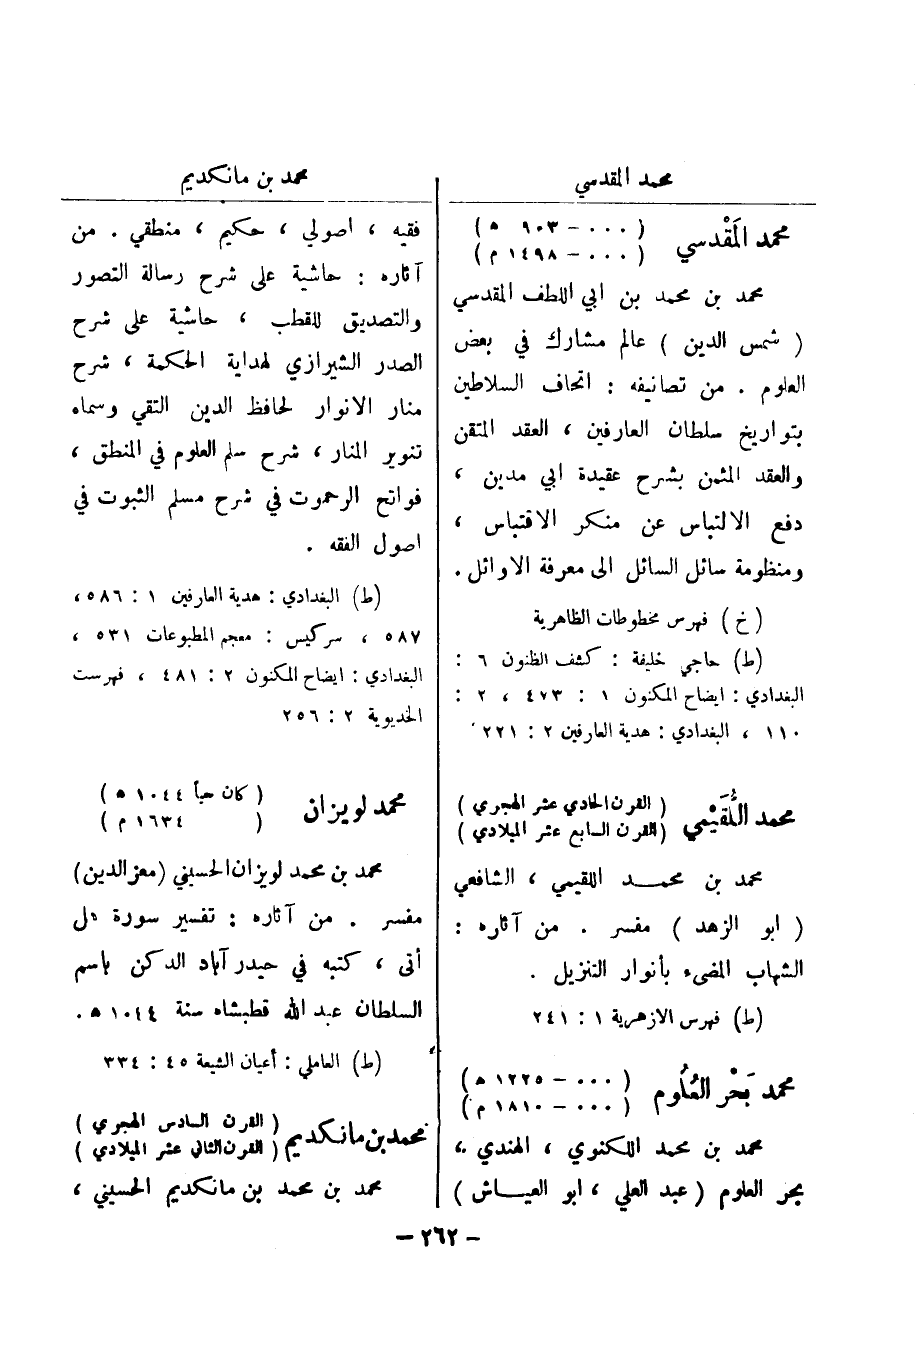 محمد المقدسي
محمد المَقْدسي
( ٠٠٠ – ٩٠٣ ه )
( ٠٠٠ – ١٤٩٨ م )
محمد بن محمد بن ابي اللطف المقدسي
( شمس الدين ) عالم مشارك في بعض
العلوم . من تصانيفه : اتحاف السلاطين
بتواريخ سلطان العارفين ، العقد المتقن
والعقد المثمن بشرح عقيدة ابي مدين ،
دفع الالتباس عن منكر الاقتباس ،
ومنظومة سائل السائل الى معرفة الاوائل .
(خ) فهرس مخطوطات الظاهرية
(ط) حاجي خليفة : كشف الظنون ٦ :
البغدادي : ايضاح المكنون ١ : ٤٧٣ ، ٢ :
١١٠ ، البغدادي : هدية العارفين ٢ : ٢٢١
محمد اللُّقَيْمي
( القرن الحادي عشر الهجري )
( القرن السابع عشر الميلادي )
محمد بن محمد اللقيمي ، الشافعي
( ابو الزهد ) مفسر . من آثاره :
الشهاب المضيء بأنوار التنزيل .
(ط) فهرس الازهرية ١ : ٢٤١
محمد بَحْر العُلوم
( ٠٠٠ – ١٢٢٥ ه )
( ٠٠٠ – ١٨١٠ م )
محمد بن محمد اللكنوي ، الهندي ،
بحر العلوم ( عبد العلي ، ابو العياش )
محمد بن مانكديم
فقيه ، اصولي ، حكيم ، منطقي . من
آثاره : حاشية على شرح رسالة التصور
والتصديق للقطب ، حاشية على شرح
الصدر الشيرازي لهداية الحكمة ، شرح
منار الانوار لحافظ الدين التقي وسماه
تنوير المنار ، شرح سلم العلوم في المنطق ،
فواتح الرحموت في شرح مسلم الثبوت في
اصول الفقه .
(ط) البغدادي : هدية العارفين ١ : ٥٨٦ ،
٥٨٧ ، سركيس : معجم المطبوعات ٥٣١ ،
البغدادي : ايضاح المكنون ٢ : ٤٨١ ، فهرست
الخديوية ٢ : ٢٥٦
محمد لويزان
( كان حياً ١٠٤٤ ه )
( ١٦٣٤ م )
محمد بن محمد لويزان الحسيني (معز الدين)
مفسر . من آثاره : تفسير سورة هل
أتى ، كتبه في حيدر آباد الدكن باسم
السلطان عبد الله قطبشاه سنة ١٠٤٤ ه .
(ط) العاملي : أعيان الشيعة ٤٥ : ٣٣٤
محمد بن مانكديم
( القرن السادس الهجري )
( القرن الثاني عشر الميلادي )
محمد بن محمد بن مانكديم الحسيني ،
– ٢٦٢ –